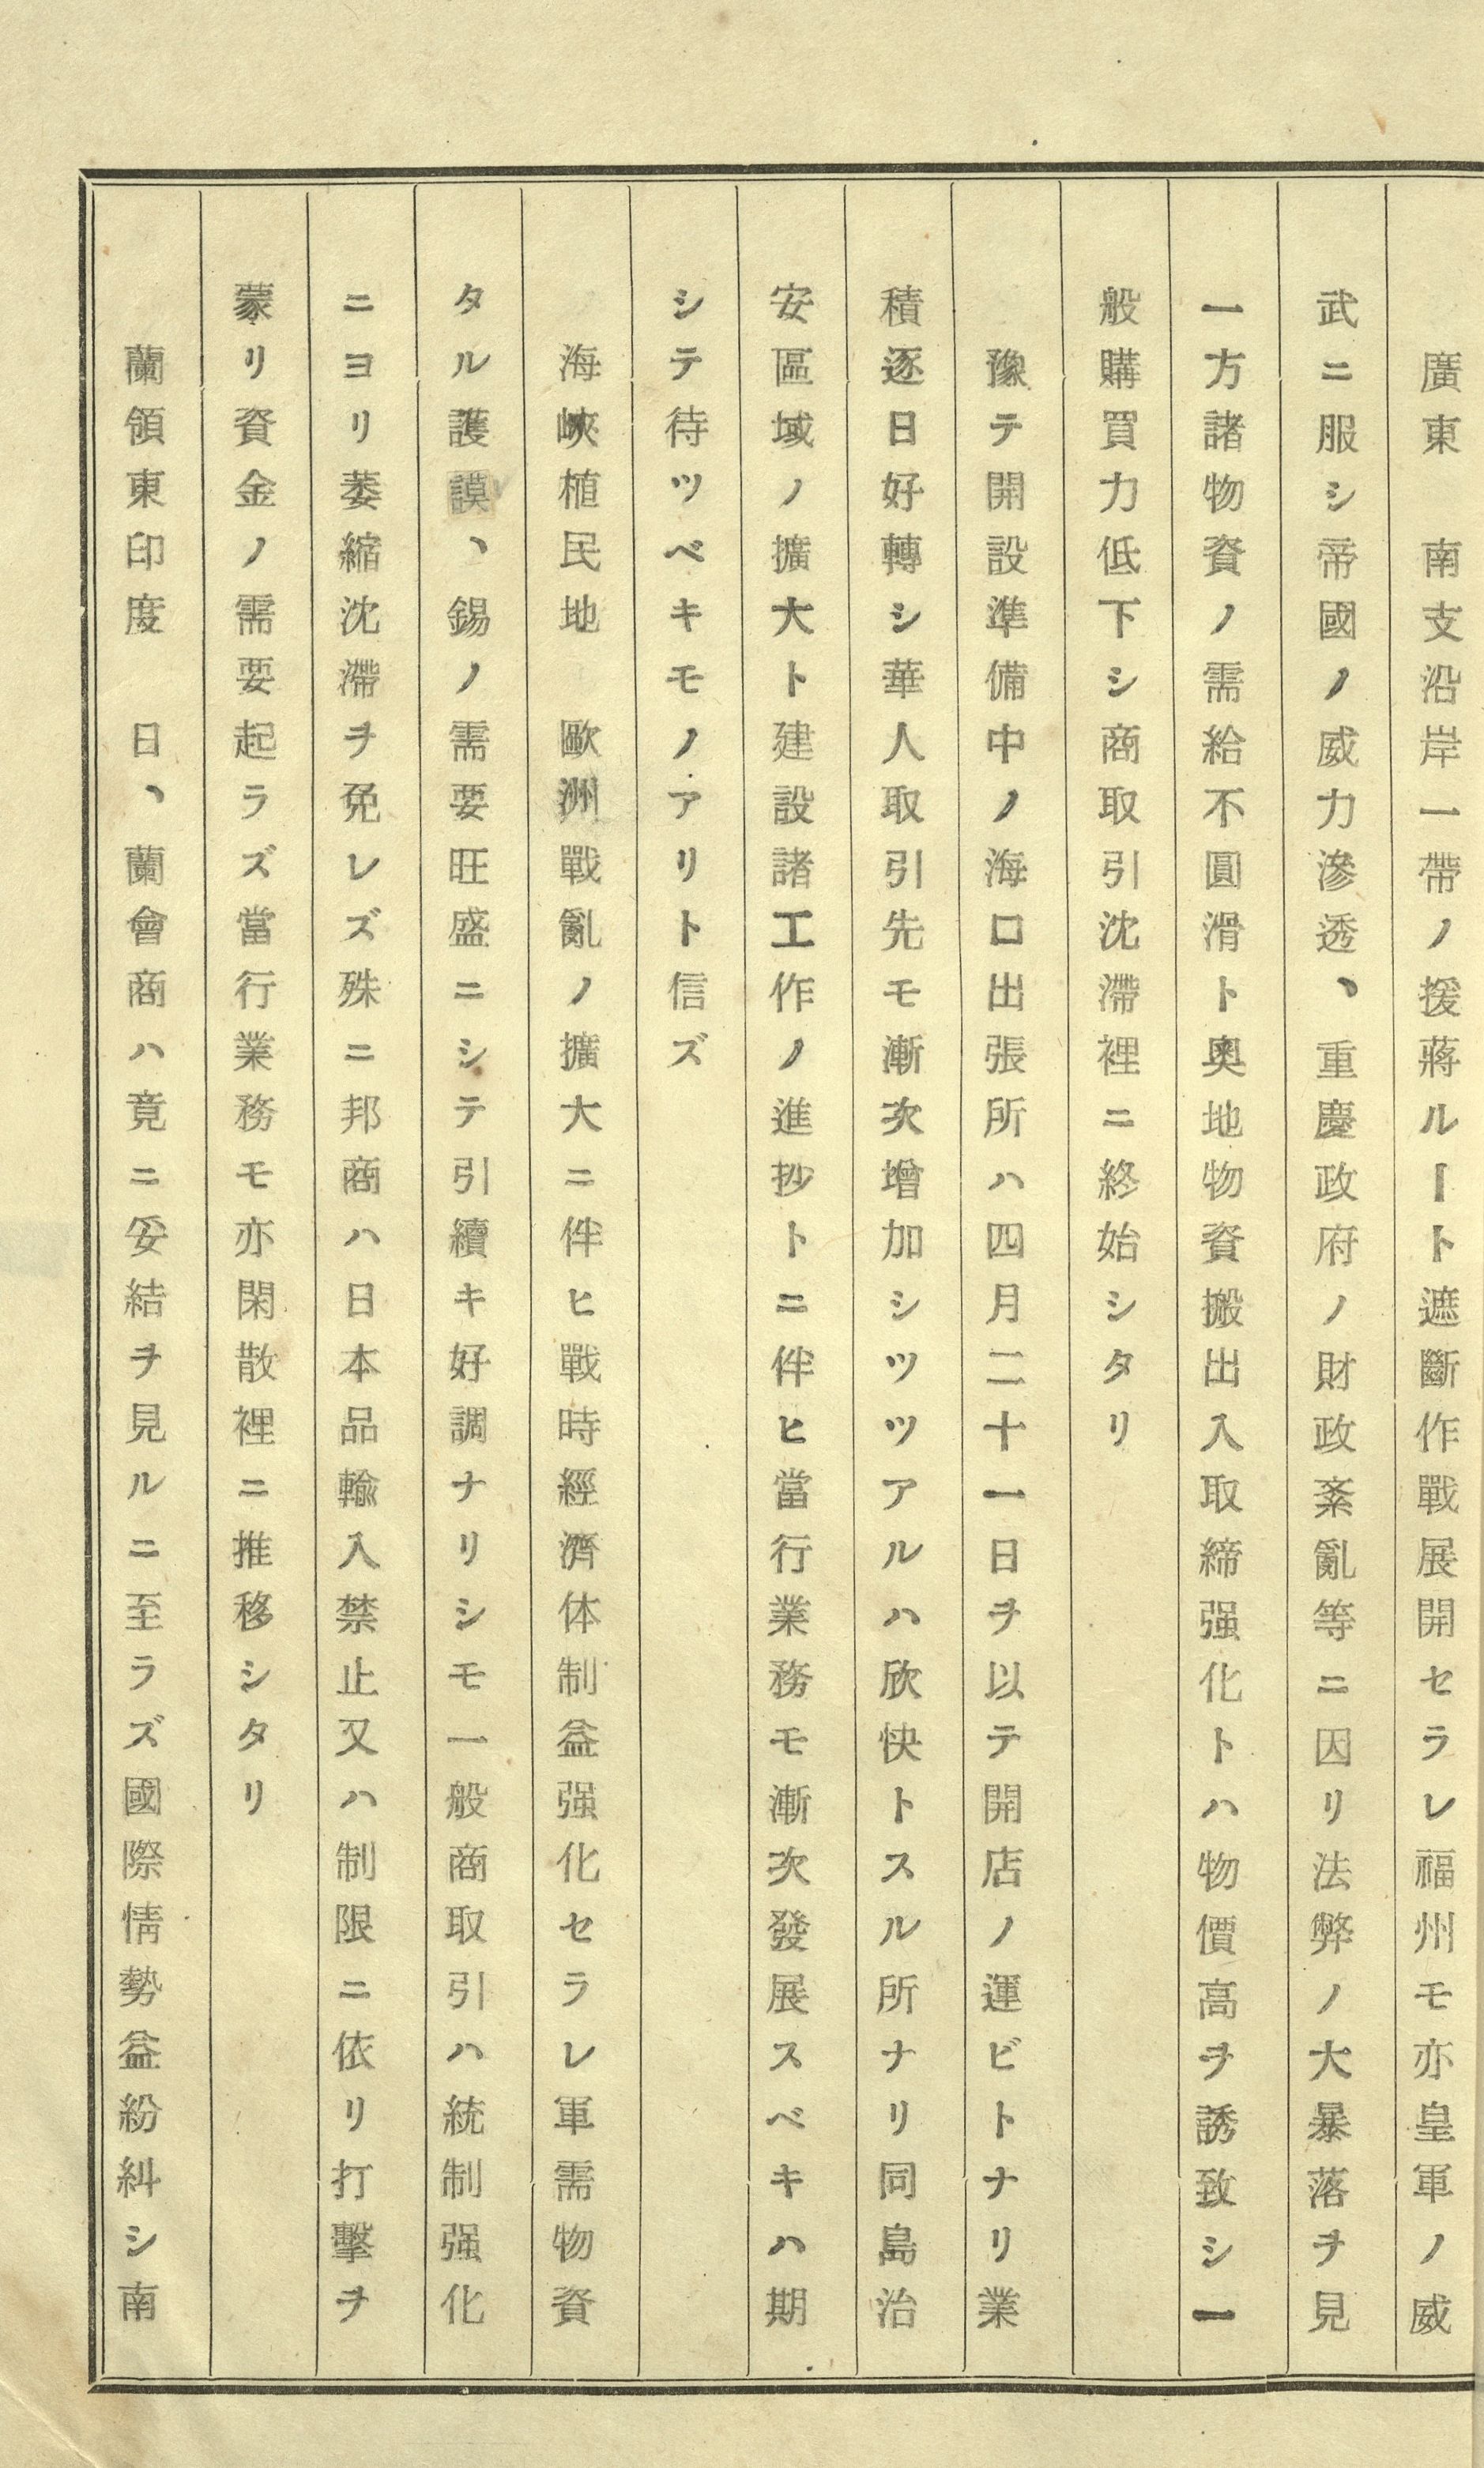 廣東　南支沿岸一帶ノ援蔣ルート遮斷作戰展開セラレ福州モ亦皇軍ノ威
武ニ服シ帝國ノ威力滲透、重慶政府ノ財政紊亂等ニ因リ法弊ノ大暴落ヲ見
一方諸物資ノ需給不圓滑ト奥地物資搬出入取締强化トハ物價高ヲ誘致シ一
般購買力低下シ商取引沈滯裡ニ終始シタリ
豫テ開設準備中ノ海口出張所ハ四月二十一日ヲ以テ開店ノ運ビトナリ業
積逐日好轉シ華人取引先モ漸次增加シツツアルハ欣快トスル所ナリ同島治
安區域ノ擴大ト建設諸工作ノ進抄トニ伴ヒ當行業務モ漸次發展スベキハ期
シテ待ツベキモノアリト信ズ
海峽植民地　歐洲戰亂ノ擴大ニ伴ヒ戰時經濟体制益强化セラレ軍需物資
タル護謨、錫ノ需要旺盛ニシテ引續キ好調ナリシモ一般商取引ハ統制强化
ニヨリ萎縮沈滯ヲ免レズ殊ニ邦商ハ日本品輸入禁止又ハ制限ニ依リ打擊ヲ
蒙リ資金ノ需要起ラズ當行業務モ亦閑散裡ニ推移シタリ
蘭領東印度　日、蘭會商ハ竟ニ妥結ヲ見ルニ至ラズ國際情勢益紛糾シ南